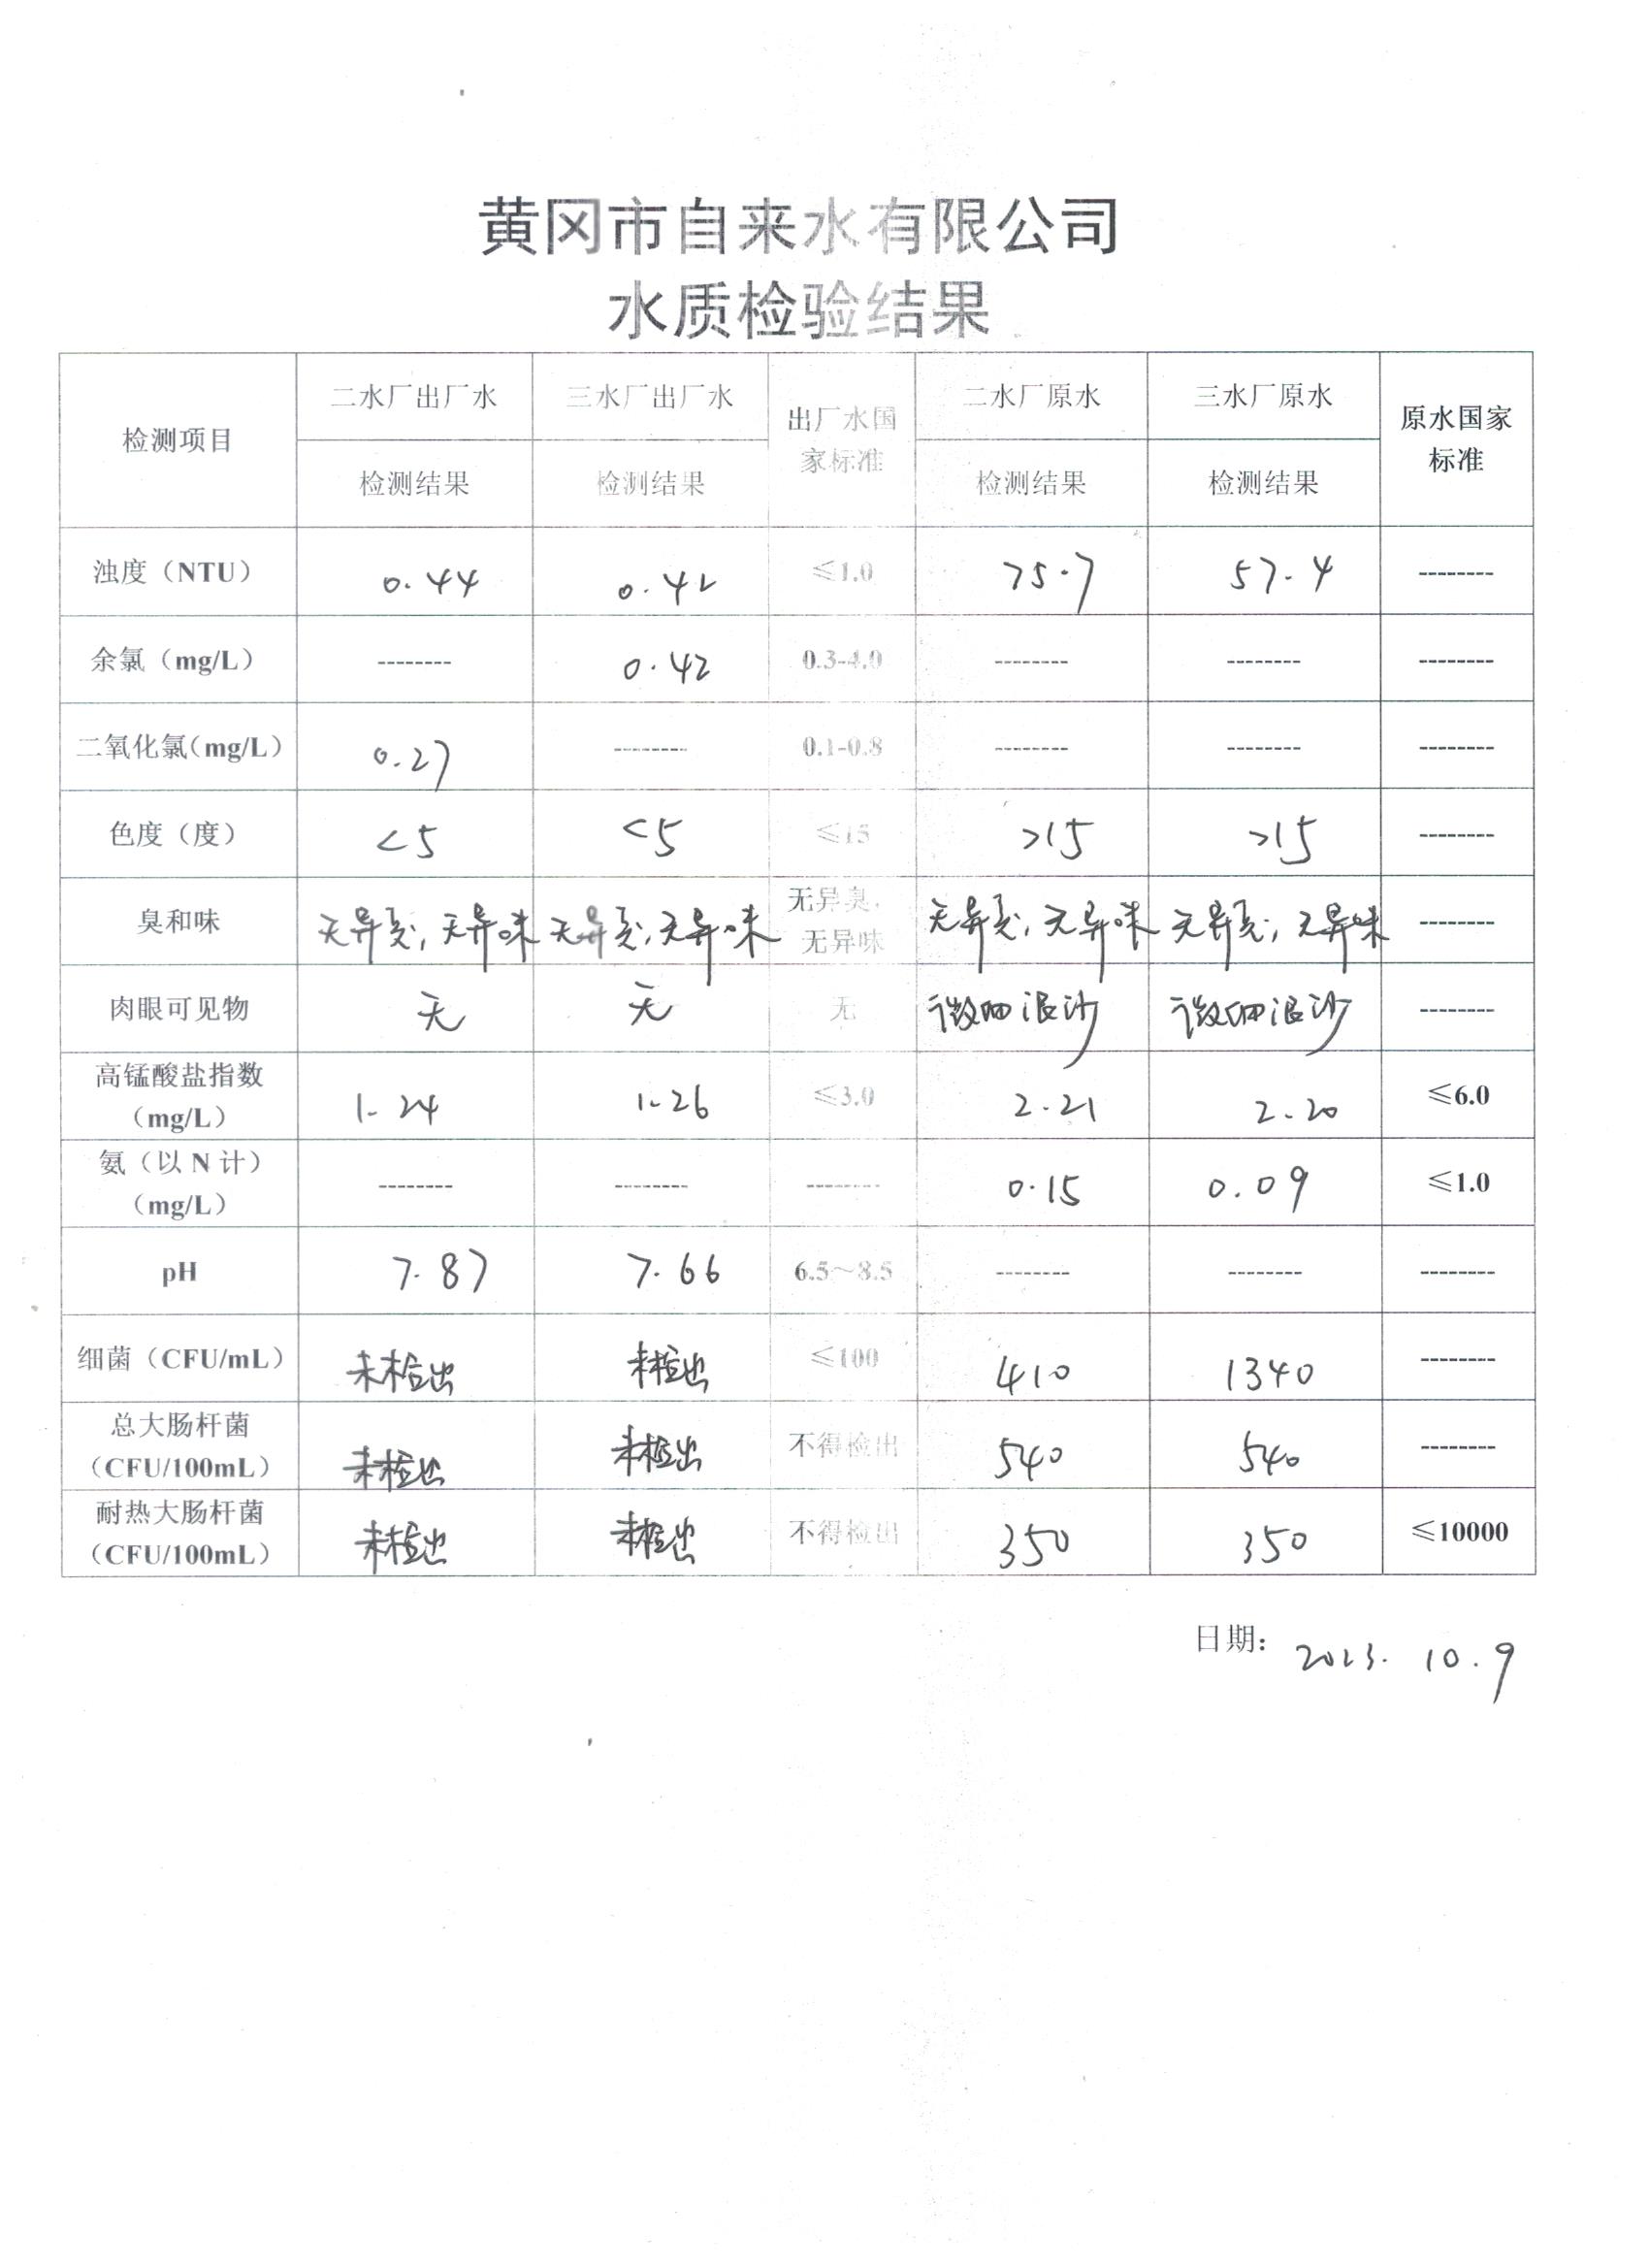 黄冈市自来水有限公司
水质检验结果
检测项目 二水厂出厂水 三水厂出厂水 出厂水国家标准 二水厂原水 三水厂原水 原水国家标准
检测结果 检测结果 检测结果 检测结果
浊度（NTU） 0.44 0.42 ≤1.0 75.7 57.4 --------
余氯（mg/L） -------- 0.42 0.3-4.0 -------- -------- --------
二氧化氯（mg/L） 0.27 -------- 0.1-0.8 -------- -------- --------
色度（度） <5 <5 ≤15 >15 >15 --------
臭和味 无异臭，无异味 无异臭，无异味 无异臭，无异味 无异臭，无异味 无异臭，无异味 --------
肉眼可见物 无 无 无 微细泥沙 微细泥沙 --------
高锰酸盐指数（mg/L） 1.24 1.26 ≤3.0 2.21 2.20 ≤6.0
氨（以 N 计）（mg/L） -------- -------- -------- 0.15 0.09 ≤1.0
pH 7.87 7.66 6.5～8.5 -------- -------- --------
细菌（CFU/mL） 未检出 未检出 ≤100 410 1340 --------
总大肠杆菌（CFU/100mL） 未检出 未检出 不得检出 540 540 --------
耐热大肠杆菌（CFU/100mL） 未检出 未检出 不得检出 350 350 ≤10000
日期： 2023. 10. 9